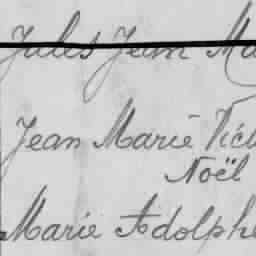 Jules Jean Ma
Jean Marie Vic
Noël
Marie Adolphe